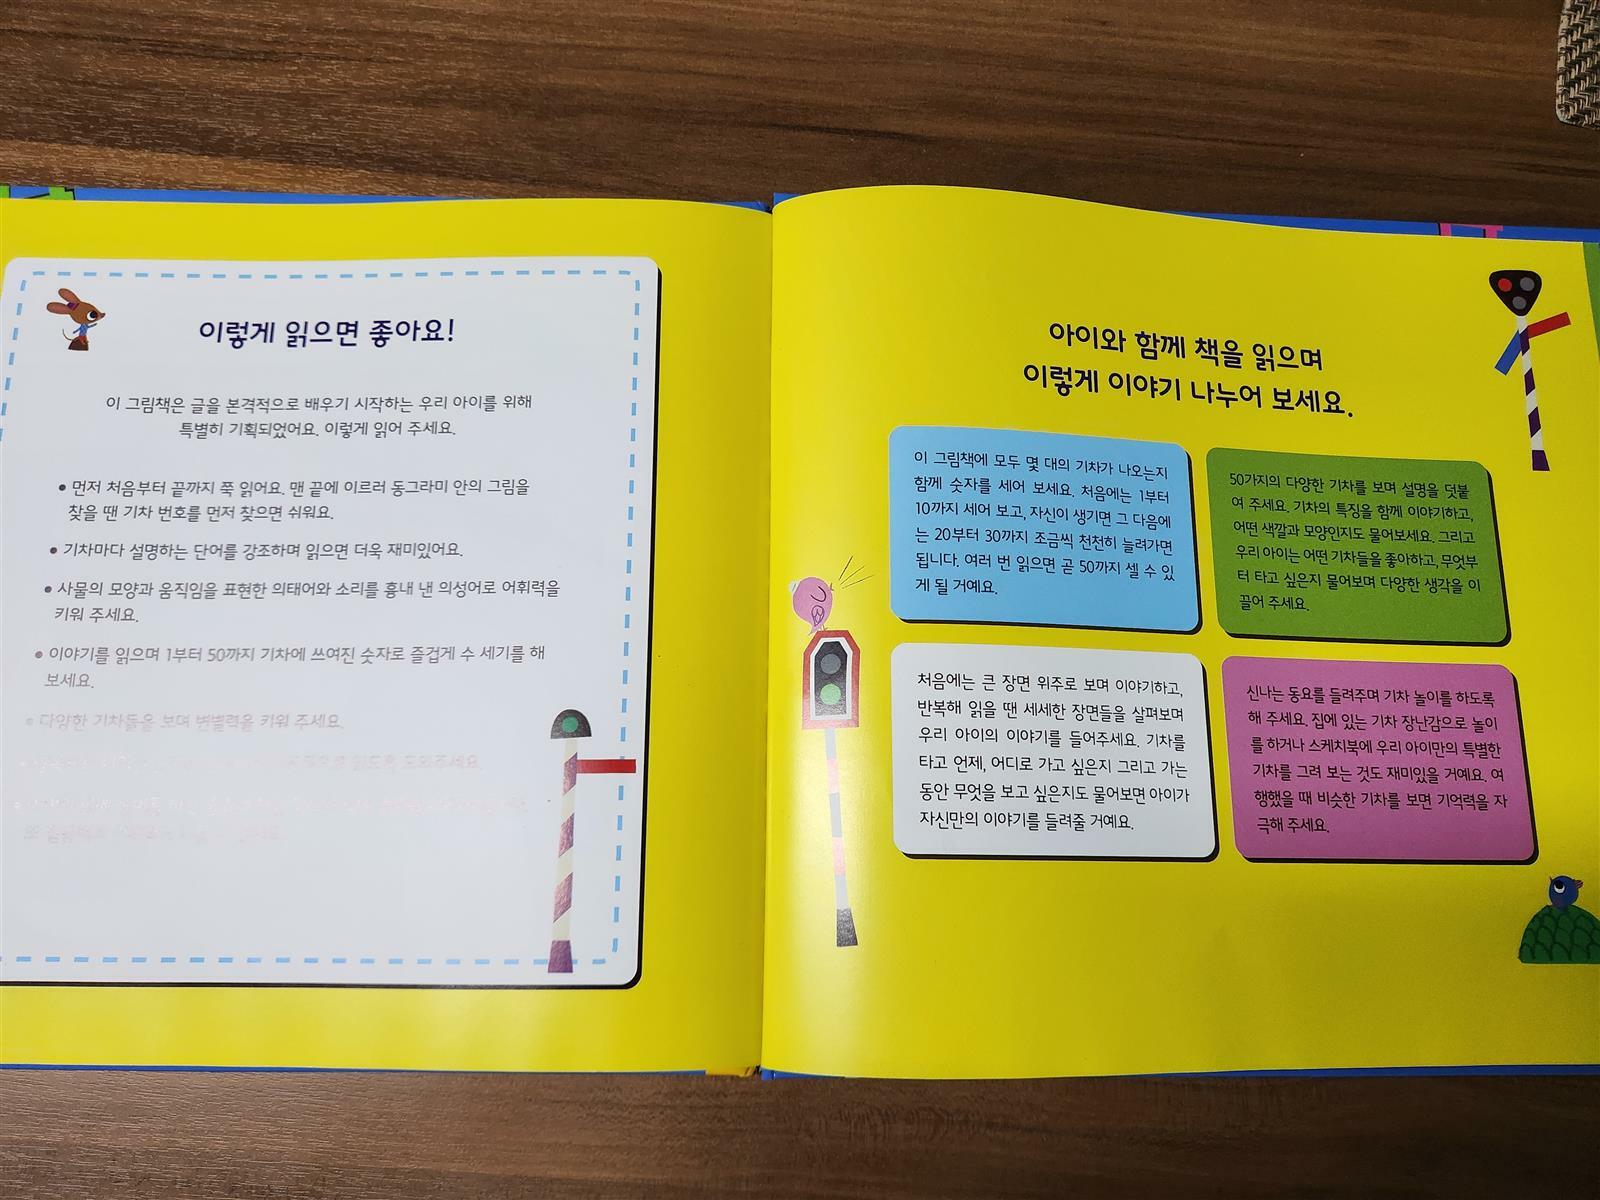 이렇게 읽으면 좋아요!
이 그림책은 글을 본격적으로 배우기 시작하는 우리 아이를 위해
특별히 기획되었어요. 이렇게 읽어 주세요.
• 먼저 처음부터 끝까지 쭉 읽어요. 맨 끝에 이르러 동그라미 안의 그림을
찾을 땐 기차 번호를 먼저 찾으면 쉬워요.
• 기차마다 설명하는 단어를 강조하며 읽으면 더욱 재미있어요.
• 사물의 모양과 움직임을 표현한 의태어와 소리를 흉내 낸 의성어로 어휘력을
키워 주세요.
• 이야기를 읽으며 1부터 50까지 기차에 쓰여진 숫자로 즐겁게 수 세기를 해
보세요.
• 다양한 기차들을 보며 변별력을 키워 주세요.
도와주세요.
아이와 함께 책을 읽으며
이렇게 이야기 나누어 보세요.
이 그림책에 모두 몇 대의 기차가 나오는지
함께 숫자를 세어 보세요. 처음에는 1부터
10까지 세어 보고, 자신이 생기면 그 다음에
는 20부터 30까지 조금씩 천천히 늘려가면
됩니다. 여러 번 읽으면 곧 50까지 셀 수 있
게 될 거예요.
50가지의 다양한 기차를 보며 설명을 덧붙
여 주세요. 기차의 특징을 함께 이야기하고,
어떤 색깔과 모양인지도 물어보세요. 그리고
우리 아이는 어떤 기차들을 좋아하고, 무엇부
터 타고 싶은지 물어보며 다양한 생각을 이
끌어 주세요.
처음에는 큰 장면 위주로 보며 이야기하고,
반복해 읽을 땐 세세한 장면들을 살펴보며
우리 아이의 이야기를 들어주세요. 기차를
타고 언제, 어디로 가고 싶은지 그리고 가는
동안 무엇을 보고 싶은지도 물어보면 아이가
자신만의 이야기를 들려줄 거예요.
신나는 동요를 들려주며 기차 놀이를 하도록
해 주세요. 집에 있는 기차 장난감으로 놀이
를 하거나 스케치북에 우리 아이만의 특별한
기차를 그려 보는 것도 재미있을 거예요. 여
행했을 때 비슷한 기차를 보면 기억력을 자
극해 주세요.